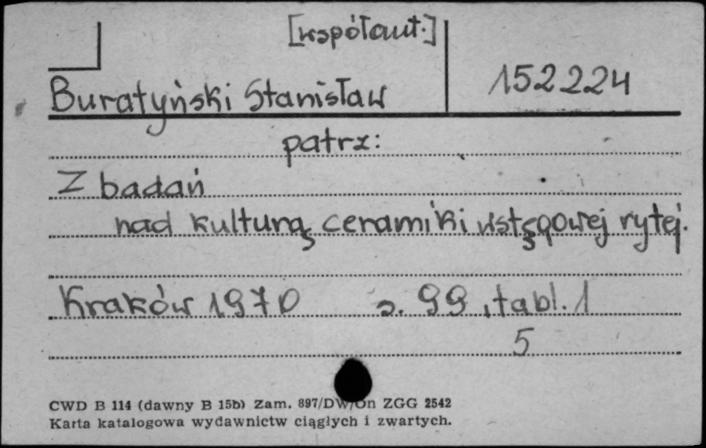 [współaut.]
Buratyński Stanisław
152224
patrz:
Z badań
nad kulturą ceramiki wstęgowej rytej.
Kraków 1970 s. 99, tabl. 1
5
CWD B 114 (dawny B 15b) Zam. 897/DW/On ZGG 2542
Karta katalogowa wydawnictw ciągłych i zwartych.